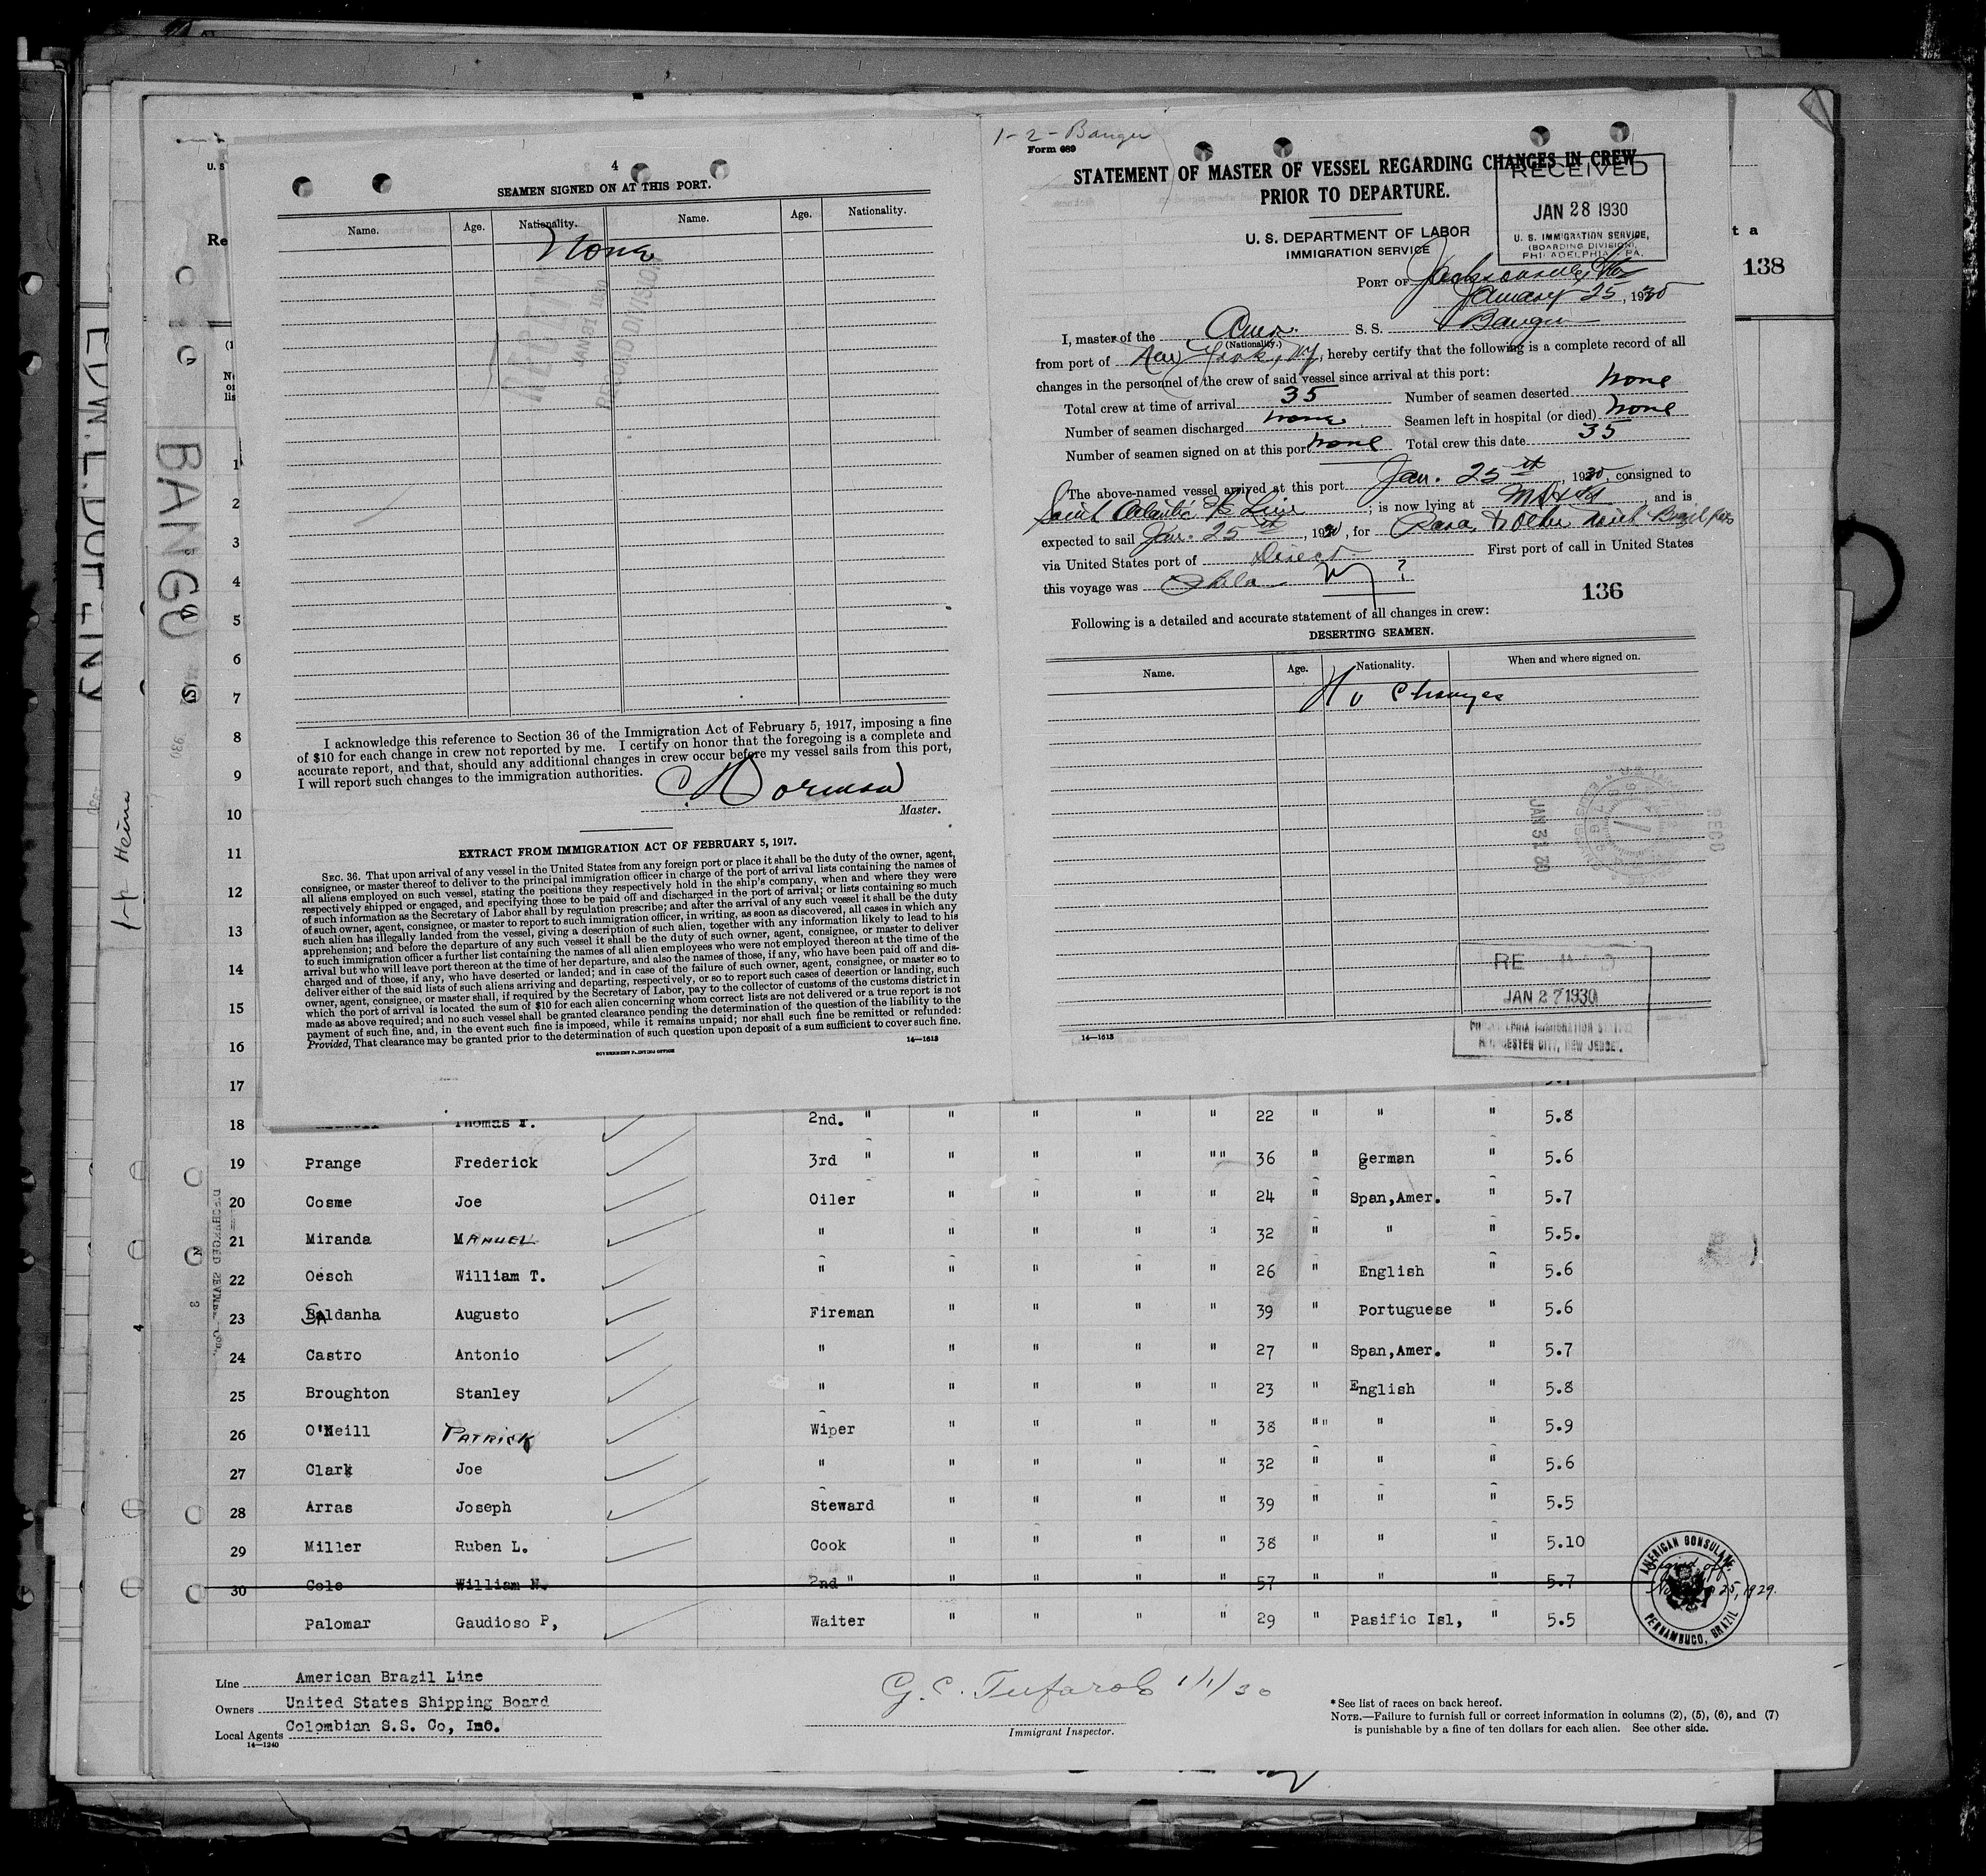 4
SEAMEN SIGNED ON AT THIS PORT.
Name. Age. Nationality. Name. Age. Nationality.
None
RECEIVED
JAN 31 1930
RECORD DIVISION
I acknowledge this reference to Section 36 of the Immigration Act of February 5, 1917, imposing a fine
of $10 for each change in crew not reported by me. I certify on honor that the foregoing is a complete and
accurate report, and that, should any additional changes in crew occur before my vessel sails from this port,
I will report such changes to the immigration authorities.
Master.
EXTRACT FROM IMMIGRATION ACT OF FEBRUARY 5, 1917.
SEC. 36. That upon arrival of any vessel in the United States from any foreign port or place it shall be the duty of the owner, agent,
consignee, or master thereof to deliver to the principal immigration officer in charge of the port of arrival lists containing the names of
all aliens employed on such vessel, stating the positions they respectively hold in the ship's company, when and where they were
respectively shipped or engaged, and specifying those to be paid off and discharged in the port of arrival; or lists containing so much
of such information as the Secretary of Labor shall by regulation prescribe; and after the arrival of any such vessel it shall be the duty
of such owner, agent, consignee, or master to report to such immigration officer, in writing, as soon as discovered, all cases in which any
such alien has illegally landed from the vessel, giving a description of such alien, together with any information likely to lead to his
apprehension; and before the departure of any such vessel it shall be the duty of such owner, agent, consignee, or master to deliver
to such immigration officer a further list containing the names of all alien employees who were not employed thereon at the time of the
arrival but who will leave port thereon at the time of her departure, and also the names of those, if any, who have been paid off and dis-
charged and of those, if any, who have deserted or landed; and in case of the failure of such owner, agent, consignee, or master so to
deliver either of the said lists of such aliens arriving and departing, respectively, or so to report such cases of desertion or landing, such
owner, agent, consignee, or master shall, if required by the Secretary of Labor, pay to the collector of customs of the customs district in
which the port of arrival is located the sum of $10 for each alien concerning whom correct lists are not delivered or a true report is not
made as above required; and no such vessel shall be granted clearance pending the determination of the question of the liability to the
payment of such fine, and, in the event such fine is imposed, while it remains unpaid; nor shall such fine be remitted or refunded:
Provided, That clearance may be granted prior to the determination of such question upon deposit of a sum sufficient to cover such fine.
GOVERNMENT PRINTING OFFICE 14—1613
1-2-Bangu
Form 689
STATEMENT OF MASTER OF VESSEL REGARDING CHANGES IN CREW
PRIOR TO DEPARTURE.
RECEIVED
JAN 28 1930
U. S. IMMIGRATION SERVICE,
(BOARDING DIVISION),
PHILADELPHIA, PA.
U. S. DEPARTMENT OF LABOR
IMMIGRATION SERVICE
PORT OF Jacksonville, Fla
January 25, 1930
I, master of the Amer. S. S. Bangu
(Nationality.)
from port of New York, NY, hereby certify that the following is a complete record of all
changes in the personnel of the crew of said vessel since arrival at this port:
Total crew at time of arrival 35 Number of seamen deserted none
Number of seamen discharged none Seamen left in hospital (or died) none
Number of seamen signed on at this port none Total crew this date 35
The above-named vessel arrived at this port Jan. 25th, 1930, consigned to
Atlantic Line; is now lying at and is
expected to sail Jan. 25th, 1930, for Para, & other Brazil
via United States port of Direct First port of call in United States
this voyage was Phila NY ?
136
Following is a detailed and accurate statement of all changes in crew:
DESERTING SEAMEN.
Name. Age. Nationality. When and where signed on.
No Changes
JAN 31 30
RECD
JAN 27 1930
PHILADELPHIA IMMIGRATION STATION
GLOUCESTER CITY, NEW JERSEY.
14—1613
138
EDW. L. DOHENY
BANGU
1-p Heina
U. S
Re
t a
1
2
3
4
5
6
7
8
9
10
11
12
13
14
15
16
17
18 Thomas F. 2nd. " " " " " 22 " " " 5.8
19 Prange Frederick 3rd " " " " "" 36 " German " 5.6
20 Cosme Joe Oiler " " " " 24 " Span,Amer. " 5.7
21 Miranda MANUEL " " " " " 32 " " " 5.5.
22 Oesch William T. " " " " " 26 " English " 5.6
23 Saldanha Augusto Fireman " " " " 39 " Portuguese " 5.6
24 Castro Antonio " " " " " 27 " Span,Amer. " 5.7
25 Broughton Stanley " " " " " 23 " English " 5.8
26 O'Neill PATRICK Wiper " " " " 38 "" " " 5.9
27 Clark Joe " " " " " 32 " " " 5.6
28 Arras Joseph Steward " " " " 39 " " " 5.5
29 Miller Ruben L. Cook " " " " 38 " " " 5.10
30 Cole William N. 2nd " " " " " 57 " " 5.7
Palomar Gaudioso P, Waiter " " " " 29 " Pasific Isl, " 5.5
AMERICAN CONSULATE
PERNAMBUCO, BRAZIL
Signed off
25, 1929.
Line American Brazil Line
Owners United States Shipping Board
Local Agents Colombian S.S. Co, Inc.
14—1240
G. C. Tufarolo 1/1/30
Immigrant Inspector.
* See list of races on back hereof.
NOTE.—Failure to furnish full or correct information in columns (2), (5), (6), and (7)
is punishable by a fine of ten dollars for each alien. See other side.